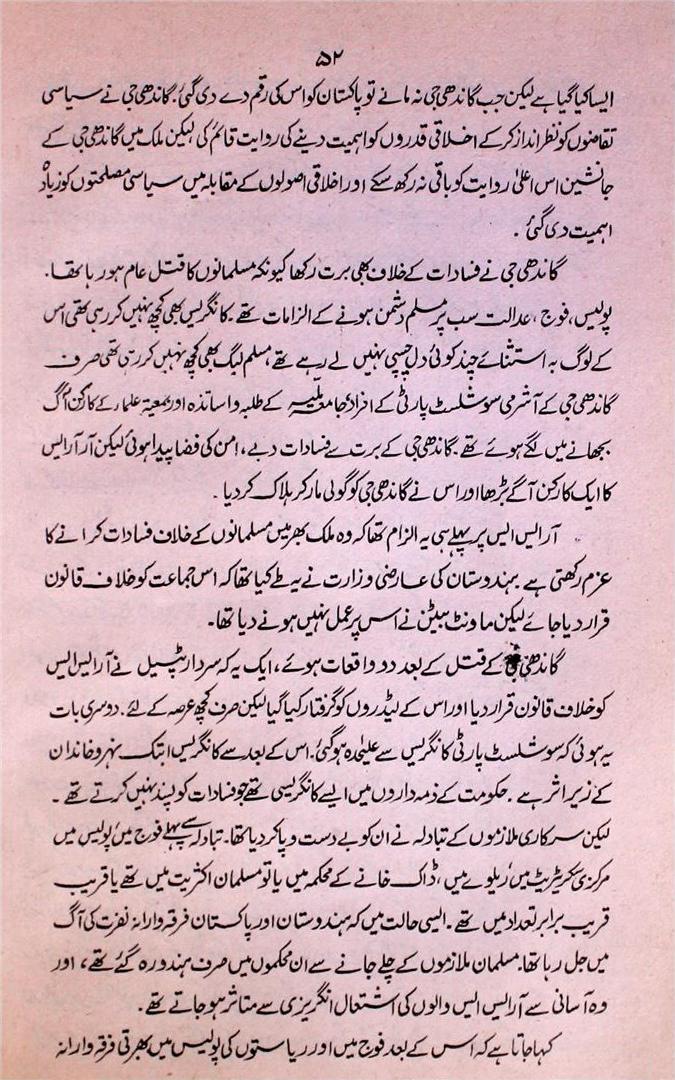 ۵۲
ایسا کیا گیا ہے لیکن جب گاندھی جی نہ مانے تو پاکستان کو اس کی رقم دے دی گئی۔ گاندھی جی نے سیاسی
تقاضوں کو نظر انداز کر کے اخلاقی قدروں کو اہمیت دینے کی روایت قائم کی لیکن ملک میں گاندھی جی کے
جانشین اس اعلیٰ روایت کو باقی نہ رکھ سکے اور اخلاقی اصولوں کے مقابلہ میں سیاسی مصلحتوں کو زیادہ
اہمیت دی گئی۔
گاندھی جی نے فسادات کے خلاف بھی برت رکھا کیونکہ مسلمانوں کا قتل عام ہو رہا تھا۔
پولیس، فوج، عدالت سب پر مسلم دشمن ہونے کے الزامات تھے۔ کانگریس بھی کچھ نہیں کر رہی تھی اس
کے لوگ بہ استثنائے چند کوئی دل چسپی نہیں لے رہے تھے مسلم لیگ بھی کچھ نہیں کر رہی تھی صرف
گاندھی جی کے آشرمی سوشلسٹ پارٹی کے افراد جامعہ ملیہ کے طلبہ و اساتذہ اور جمعیۃ علماء کے کارکن آگ
بجھانے میں لگے ہوئے تھے۔ گاندھی جی کے برت سے فسادات دبے، امن کی فضا پیدا ہوئی لیکن آر ایس ایس
کا ایک کارکن آگے بڑھا اور اس نے گاندھی جی کو گولی مار کر ہلاک کر دیا۔
آر ایس ایس پر پہلے ہی یہ الزام تھا کہ وہ ملک بھر میں مسلمانوں کے خلاف فسادات کرانے کا
عزم رکھتی ہے۔ ہندوستان کی عارضی وزارت نے یہ طے کیا تھا کہ اس جماعت کو خلاف قانون
قرار دیا جائے لیکن ماونٹ بیٹن نے اس پر عمل نہیں ہونے دیا تھا۔
گاندھی جی کے قتل کے بعد دو واقعات ہوئے، ایک یہ کہ سردار پٹیل نے آر ایس ایس
کو خلاف قانون قرار دیا اور اس کے لیڈروں کو گرفتار کیا گیا لیکن صرف کچھ عرصہ کے لئے۔ دوسری بات
یہ ہوئی کہ سوشلسٹ پارٹی کانگریس سے علیحدہ ہو گئی۔ اس کے بعد سے کانگریس ابتک نہرو خاندان
کے زیر اثر ہے۔ حکومت کے ذمہ داروں میں ایسے کانگریسی تھے جو فسادات کو پسند نہیں کرتے تھے۔
لیکن سرکاری ملازموں کے تبادلہ نے ان کو بے دست و پا کر دیا تھا۔ تبادلہ سے پہلے فوج میں، پولیس میں
مرکزی سکریٹریٹ میں، ریلوے میں، ڈاک خانے کے محکمہ میں یا تو مسلمان اکثریت میں تھے یا قریب
قریب برابر تعداد میں تھے۔ ایسی حالت میں کہ ہندوستان اور پاکستان فرقہ وارانہ نفرت کی آگ
میں جل رہا تھا۔ مسلمان ملازموں کے چلے جانے سے ان محکموں میں صرف ہندو رہ گئے تھے، اور
وہ آسانی سے آر ایس ایس والوں کی اشتعال انگریزی سے متاثر ہو جاتے تھے۔
کہا جاتا ہے کہ اس کے بعد فوج میں اور ریاستوں کی پولیس میں بھرتی فرقہ وارانہ